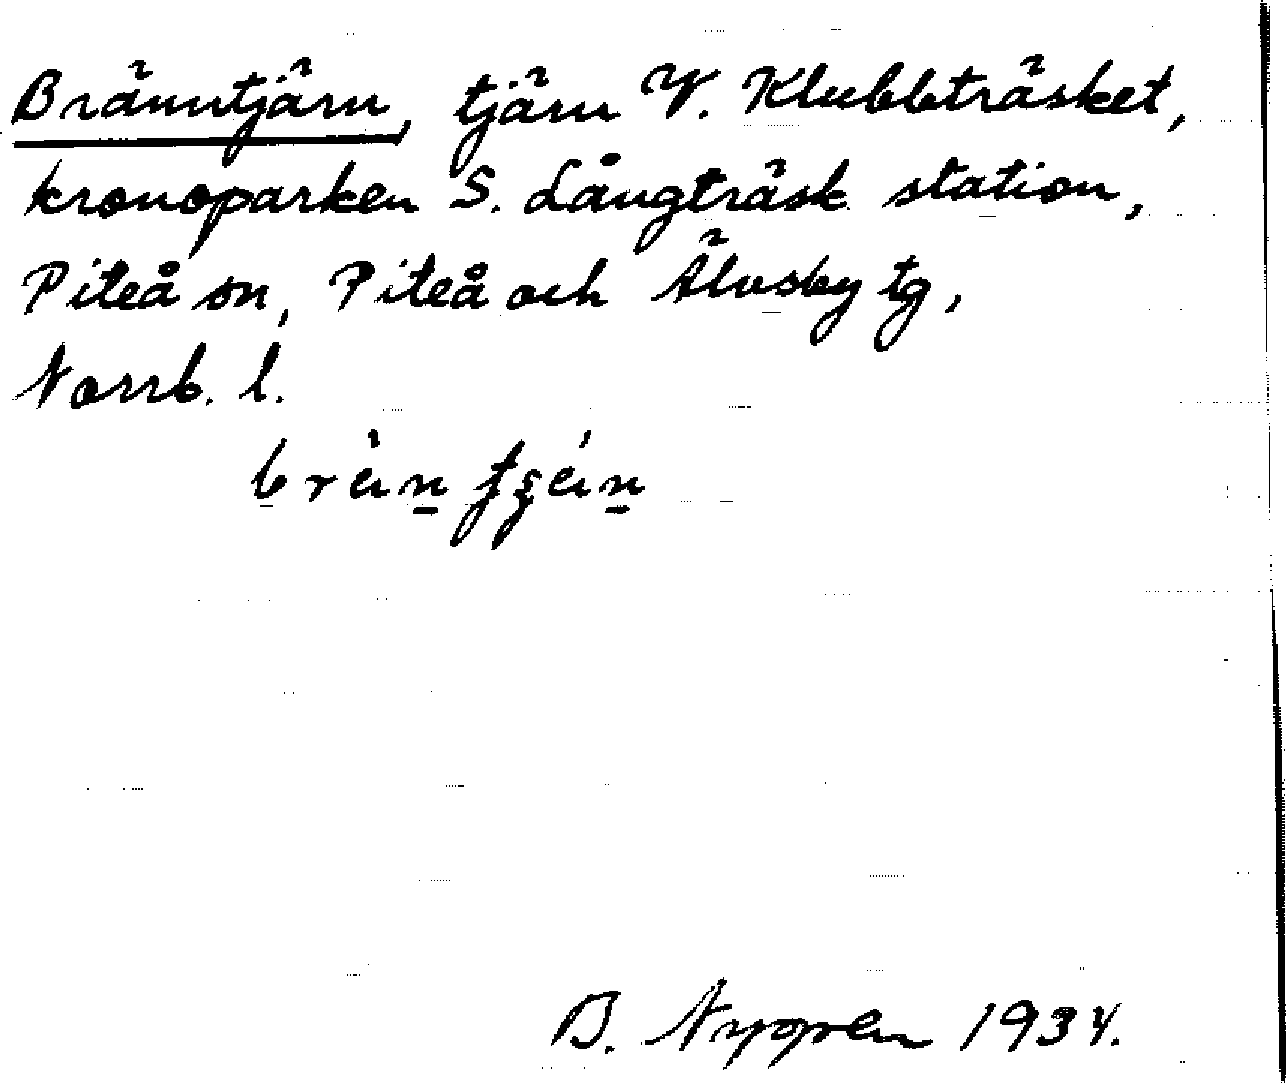 Bränntjärn, tjärn V. Klubbträsket,
kronoparken S. Långträsk station,
Piteå sn, Piteå och Älvsby tg,
Norrb. l.
B. Nygren 1934.